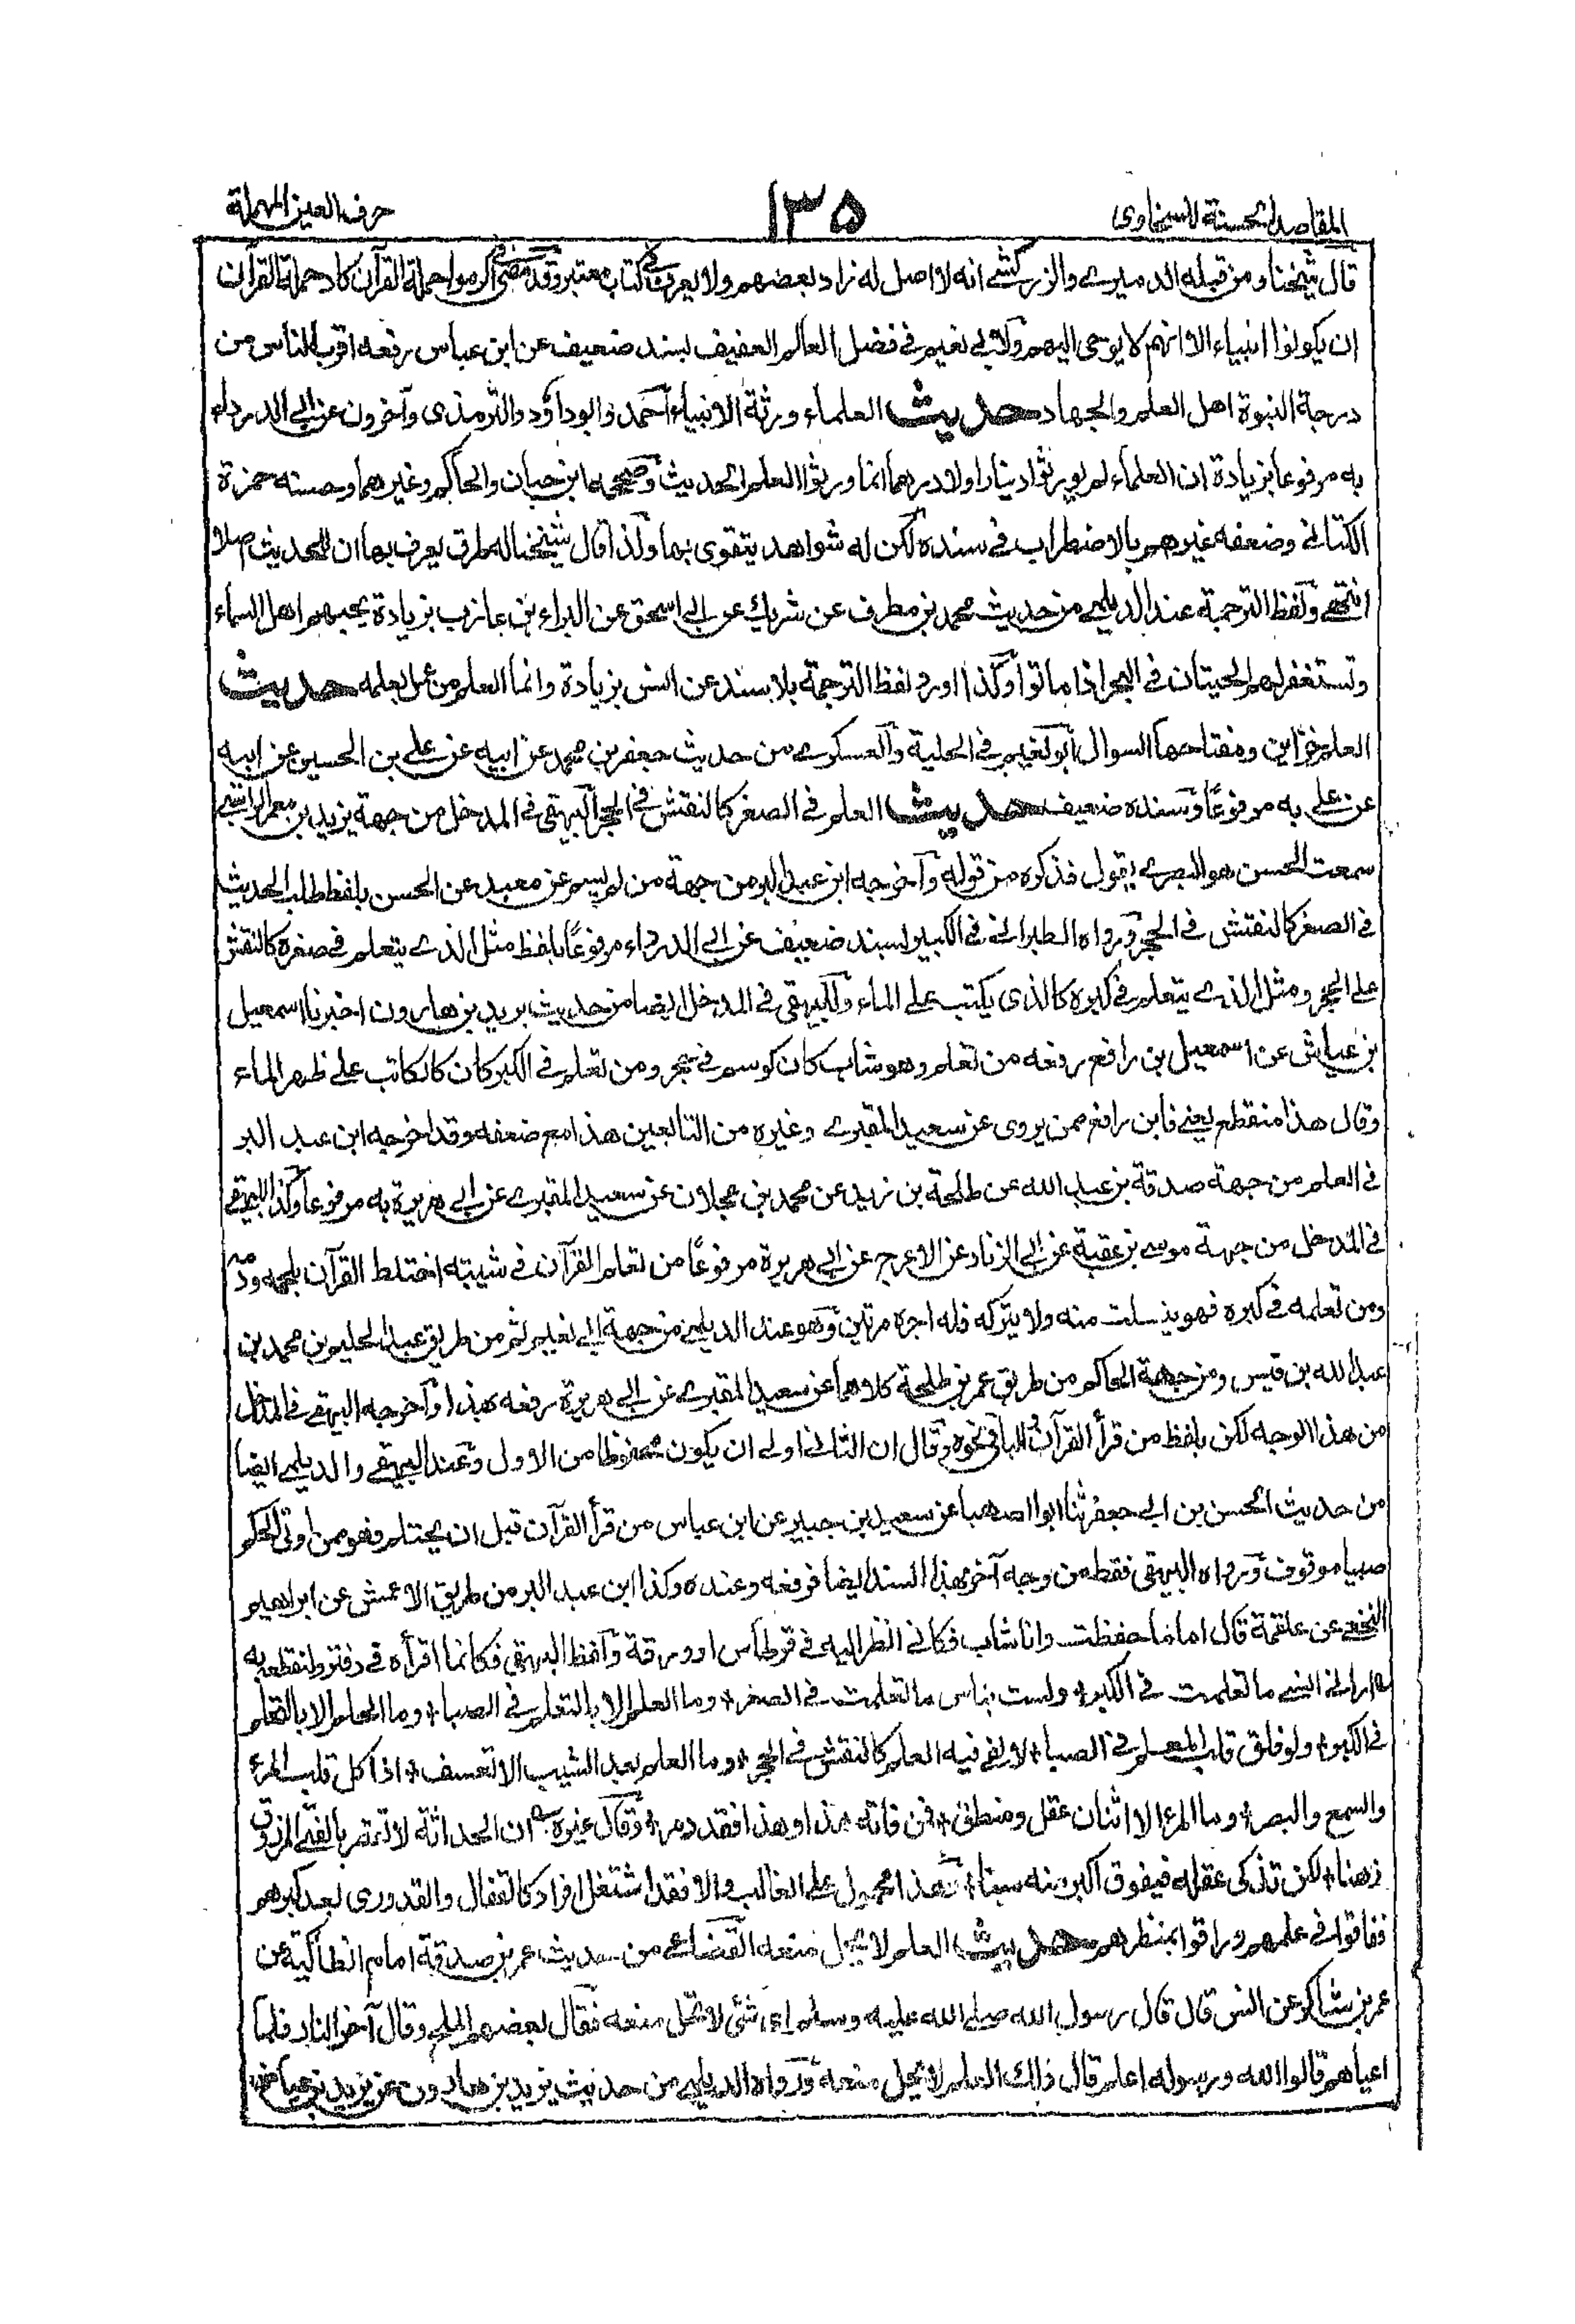 المقاصد الحسنة للسخاوى
۱۳۵
حرف العين المهملة
قال شيخنا ومن قبله الدميرے والزركشے انه لا اصل له زاد بعضهم ولا يعرف فى كتاب معتبر وقد مضى فى اكرموا حملة القرآن كاد حملة القرآن
ان يكونوا انبياء الا انهم لا يوحى اليهم ولابى نعيم فے فضل العالم العفيف بسند ضعيف عن ابن عباس رفعه اقرب الناس من
درجة النبوة اهل العلم والجهاد حديث العلماء ورثة الانبياء احمد وابوداؤد والترمذى وآخرون عن ابى الدرداء
به مرفوعا بزيادة ان العلماء لم يورثوا دينارا ولا درهما انما ورثوا العلم الحديث وصححه ابن حبان والحاكم وغيرهما وحسنه حمزة
الكنانے وضعفه غيرهم بالاضطراب فے سنده لكن له شواهد يتقوى بها ولذا قال شيخنا له طرق يعرف بها ان للحديث اصلا
انتهى ولفظ الترجمة عند الديلمے من حديث محمد بن مطرف عن شريك عن ابى اسحق عن البراء بن عازب بزيادة يحبهم اهل السماء
وتستغفر لهم الحيتان فے البحر اذا ماتوا وكذا اورد لفظ الترجمة بلا سند عن انس بزيادة وانما العلم من عمل بعلمه حديث
العلم خزاين ومفتاحها السوال ابو نعيم فے الحلية والعسكرے من حديث جعفر بن محمد عن ابيه عن علے بن الحسين عن ابيه
عن علے به مرفوعًا وسنده ضعيف حديث العلم فے الصغر كالنقش فے الحجر البيهقى فے المدخل من جهة يزيد بن معمر الراسبے
سمعت الحسن هو البصرے يقول فذكره من قوله وآخرجه ابن عبد البر من جهة من لم يسم عن معبد عن الحسن بلفظ طلب الحديث
فے الصغر كالنقش فے الحجر ورواه الطبرانے فے الكبير بسند ضعيف عن ابى الدرداء مرفوعًا بلفظ مثل الذے يتعلم فے صغره كالنقش
علے الحجر ومثل الذے يتعلم فے كبره كالذى يكتب علے الماء وللبيهقى فے المدخل ايضا من حديث يزيد بن هارون اخبرنا اسمعيل
بن عياش عن اسمعيل بن رافع رفعه من تعلم وهو شاب كان كوسم فے حجر ومن تعلم فے الكبر كان كالكاتب علے ظهر الماء
وقال هذا منقطع يعنے فابن رافع ممن يروى عن سعيد المقبرے وغيره من التابعين هذا مع ضعفه وقد اخرجه ابن عبد البر
فے العلم من جهة صدقة بن عبد الله عن طلحة بن زيد عن محمد بن عجلان عن سعيد المقبرے عن ابى هريرة به مرفوعا وكذا البيهقے
فے المدخل من جهة موسے بن عقبة عن ابى الزناد عن الاعرج عن ابى هريرة مرفوعًا من تعلم القرآن فے شبيته اختلط القرآن بلحمه ودمه
ومن تعلمه فے كبره فهو ينفلت منه ولا يتركه فله اجره مرتين وهو عند الديلمے من جهة ابى نعيم ثم من طريق عبد الحليم بن محمد بن
عبد الله بن قيس ومن جهة الحاكم من طريق عمر بن طلحة كلاهما عن سعيد المقبرے عن ابى هريرة رفعه بهذا وآخرجه البيهقے فے المدخل
من هذا الوجه لكن بلفظ من قرأ القرآن والباقى نحوه وقال ان الثانے اولے ان يكون محفوظا من الاول وعند البيهقے والديلمے ايضا
من حديث الحسن بن ابى جعفر ثنا ابوا الصهبا عن سعيد بن جبير عن ابن عباس من قرأ القرآن قبل ان يحتلم فهو ممن اوتى الحكم
صبيا موقوف ورواه البيهقى فقط من وجه آخر بهذا السند ايضا فرفعه وعنده وكذا ابن عبد البر من طريق الاعمش عن ابراهيم
النخعے عن علقمة قال اما ما حفظت وانا شاب فكانے انظر اليه فے قرطاس او ورقة ولفظ البيهقى فكانما اقرأه فے دفتر ولنفطويه
ارانے انسے ما تعلمت فے الكبر ولست بناس ما تعلمت فے الصغر وما العلم الا بالتعلم فے الصبا وما الحلم الا بالتحلم
فے الكبر ولو فلق قلب المعلم فے الصبا لالفے فيه العلم كالنقش فے الحجر وما العلم بعد الشيب الا تعسف اذا كل قلب المرء
والسمع والبصر وما المرء الا اثنان عقل ومنطق فمن فاته هذا وهذا فقد دمر وقال غيره ان الحداثة لا تقصر بالفتى المرزوق
ذهنا لكن تذكى عقله فيفوق اكبر منه سنا هذا محمول علے الغالب والا فقد اشتغل افراد كالقفال والقدورى بعد كبرهم
ففاقوا فے علمهم وراقوا بمنظرهم حديث العلم لا يحل منعه القضاعے من حديث عمر بن صدقة امام انطاكية عن
عمر بن شاكر عن انس قال قال رسول الله صلے الله عليه وسلم اى شئى لا يحل منعه فقال بعضهم الملح وقال آخر النار فلما
اعياهم قالوا الله ورسوله اعلم قال ذلك العلم لا يحل منعه ورواه الديلمے من حديث يزيد بن هارون عن يزيد بن عياض